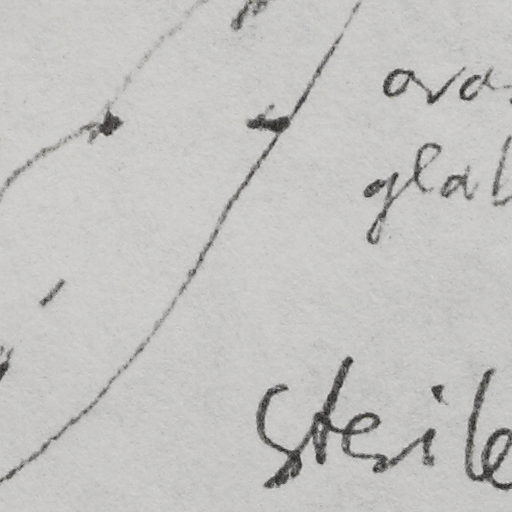 ova
glab
sterile